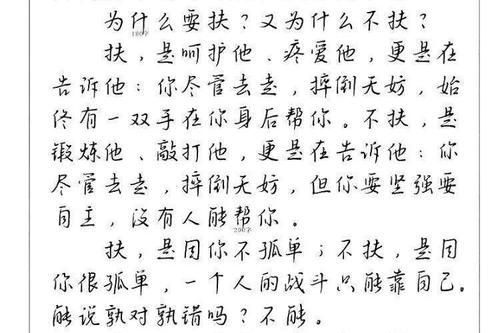 为什么要扶？又为什么不扶？
180字
扶，是呵护他、疼爱他，更是在
告诉他：你尽管去走，摔倒无妨，始
终有一双手在你身后帮你。不扶，是
锻炼他、敲打他，更是在告诉他：你
尽管去走，摔倒无妨，但你要坚强要
自主，没有人能帮你。
200字
扶，是因你不孤单；不扶，是因
你很孤单，一个人的战斗只能靠自己。
能说孰对孰错吗？不能。